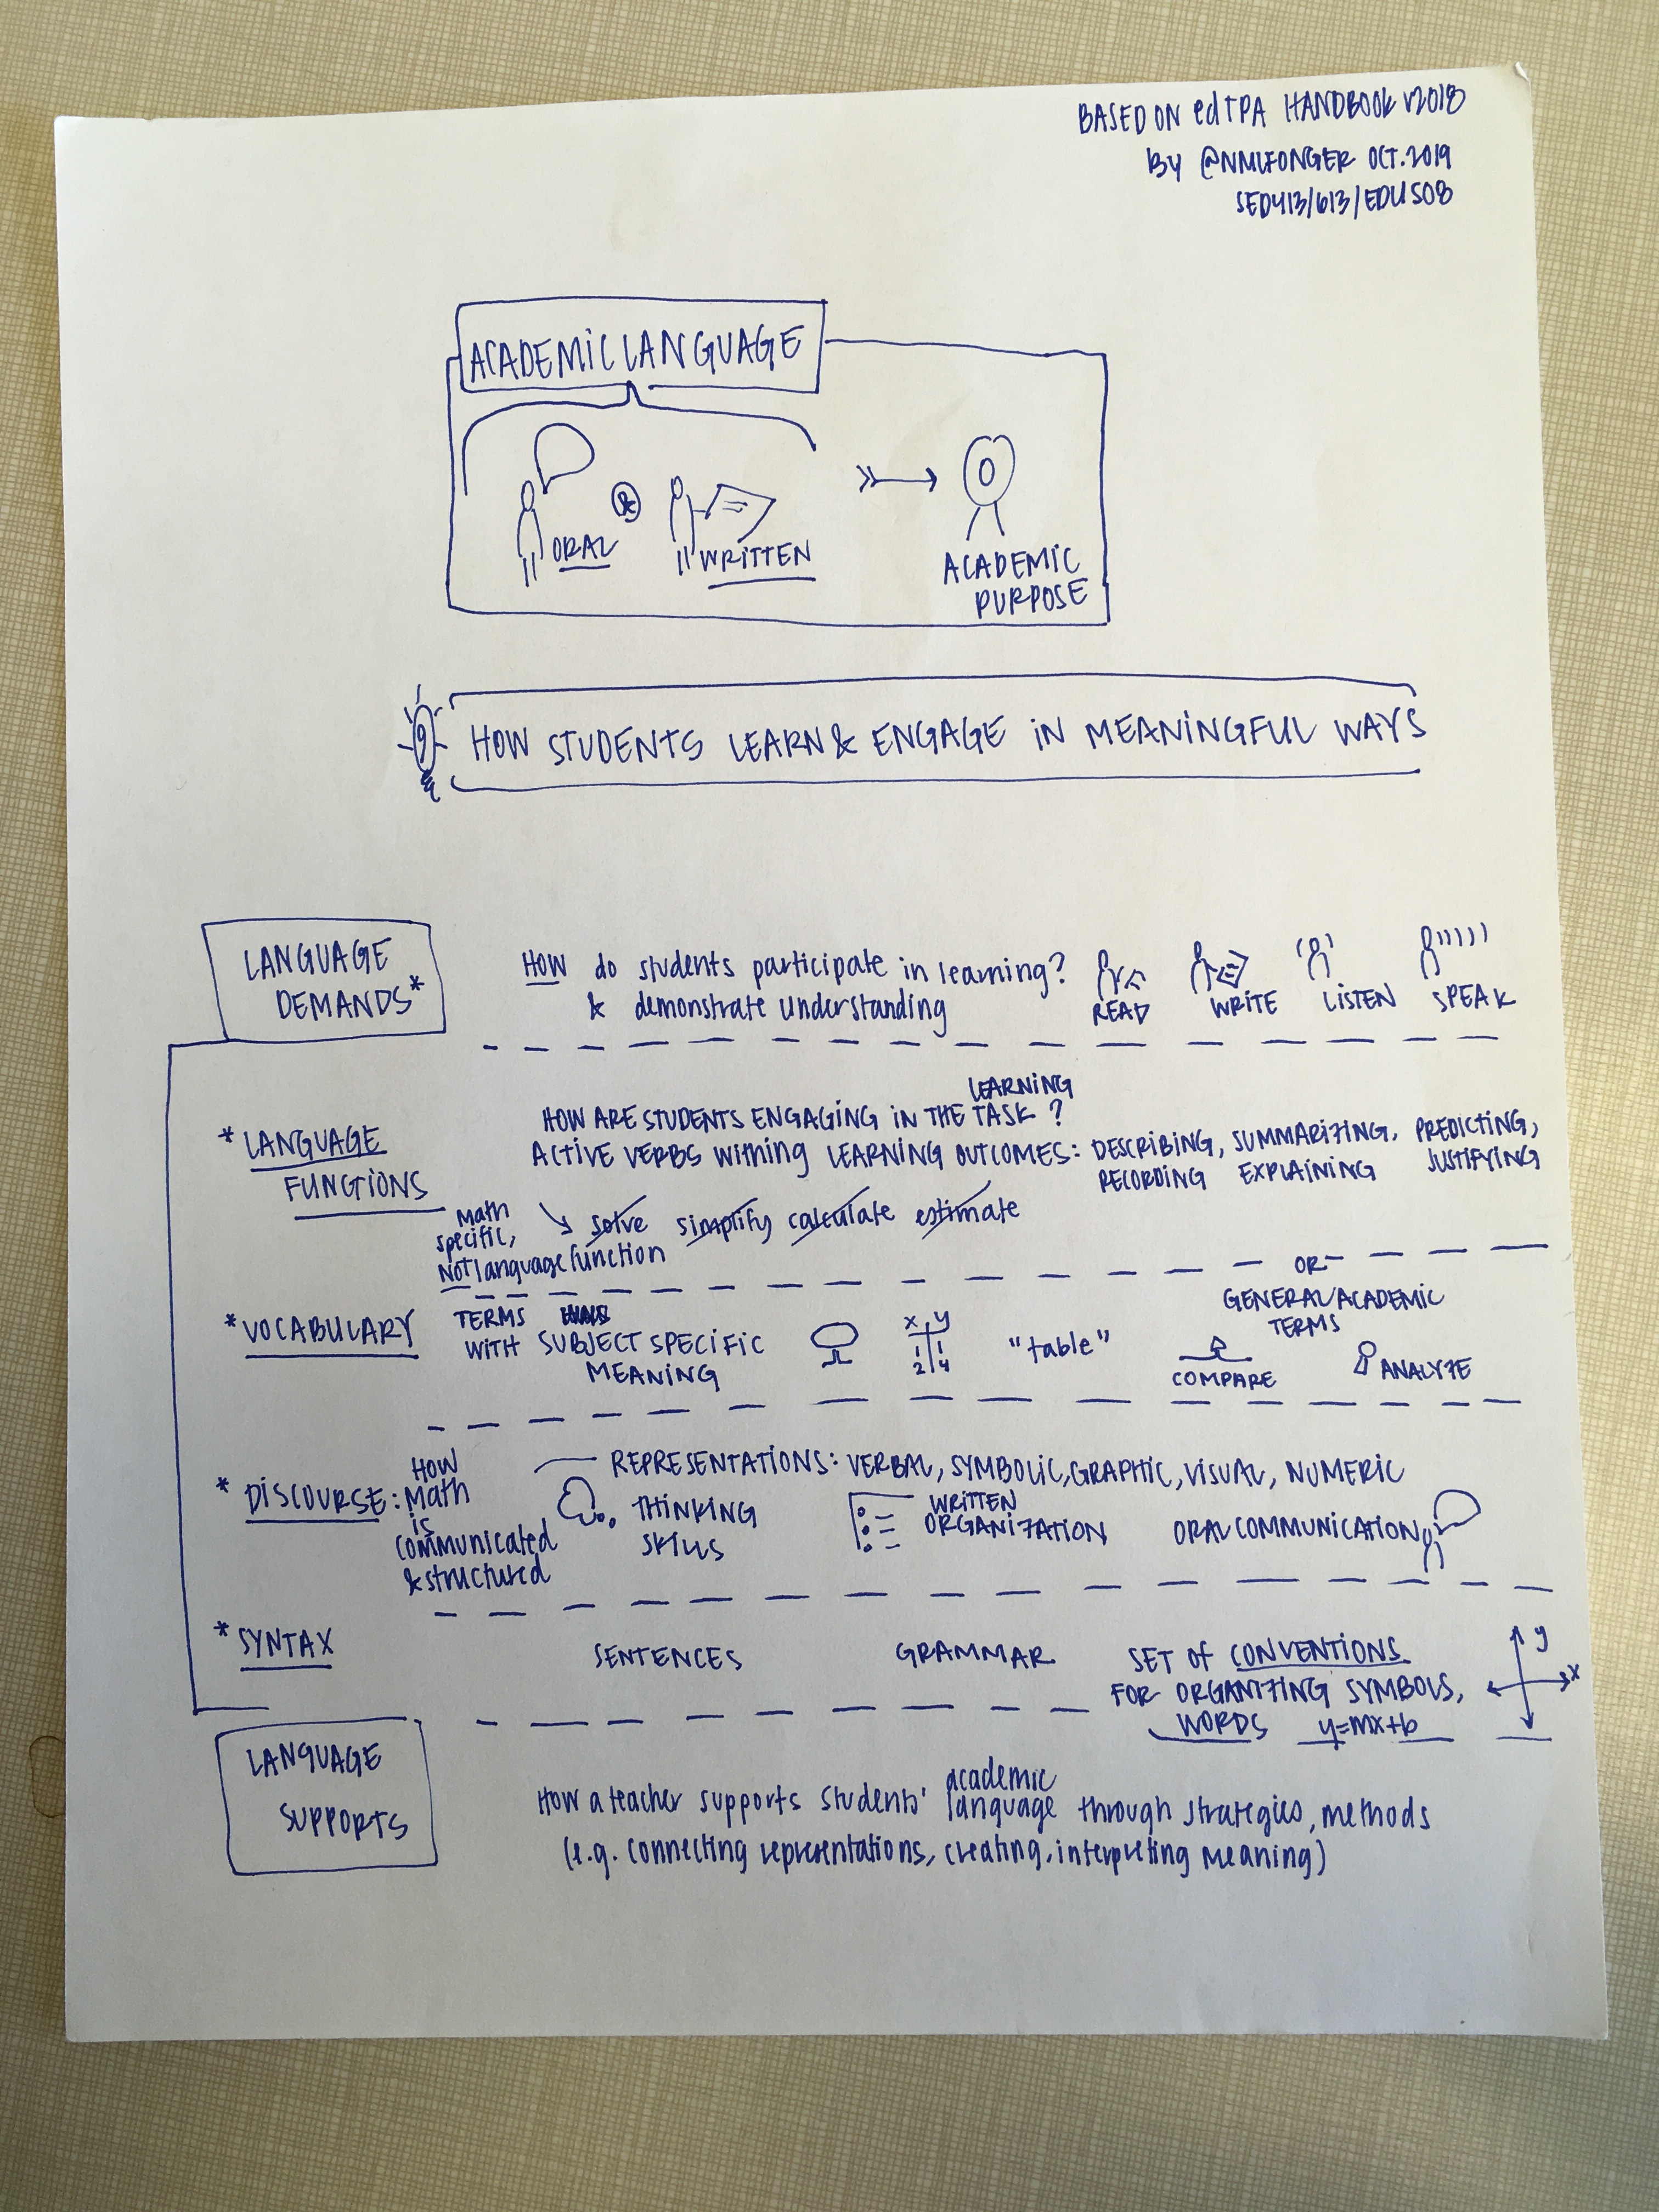 BASED ON edTPA HANDBOOK V2018
By @NMLFONGER OCT. 2019
SED413/613/EDU508
ACADEMIC LANGUAGE
ORAL & WRITTEN
ACADEMIC
PURPOSE
HOW STUDENTS LEARN & ENGAGE IN MEANINGFUL WAYS
LANGUAGE
DEMANDS*
HOW do students participate in learning?
& demonstrate understanding
READ WRITE LISTEN SPEAK
* LANGUAGE
FUNCTIONS
LEARNING
HOW ARE STUDENTS ENGAGING IN THE TASK?
ACTIVE VERBS withing LEARNING OUTCOMES: DESCRIBING, SUMMARIZING, PREDICTING,
RECORDING EXPLAINING JUSTIFYING
Math
specific,
NOT language function
solve simplify calculate estimate
* VOCABULARY
TERMS
WITH SUBJECT SPECIFIC
MEANING
x y
1 1
2 4
"table"
OR
GENERAL/ACADEMIC
TERMS
COMPARE ANALYZE
* DISCOURSE:
HOW
Math
is
communicated
& structured
REPRESENTATIONS: VERBAL, SYMBOLIC, GRAPHIC, VISUAL, NUMERIC
THINKING
SKILLS
WRITTEN
ORGANIZATION
ORAL COMMUNICATION
* SYNTAX
SENTENCES GRAMMAR
SET of CONVENTIONS
FOR ORGANIZING SYMBOLS,
WORDS y=mx+b
y
x
LANGUAGE
SUPPORTS
academic
How a teacher supports students' language through strategies, methods
(e.g. connecting representations, creating, interpreting meaning)